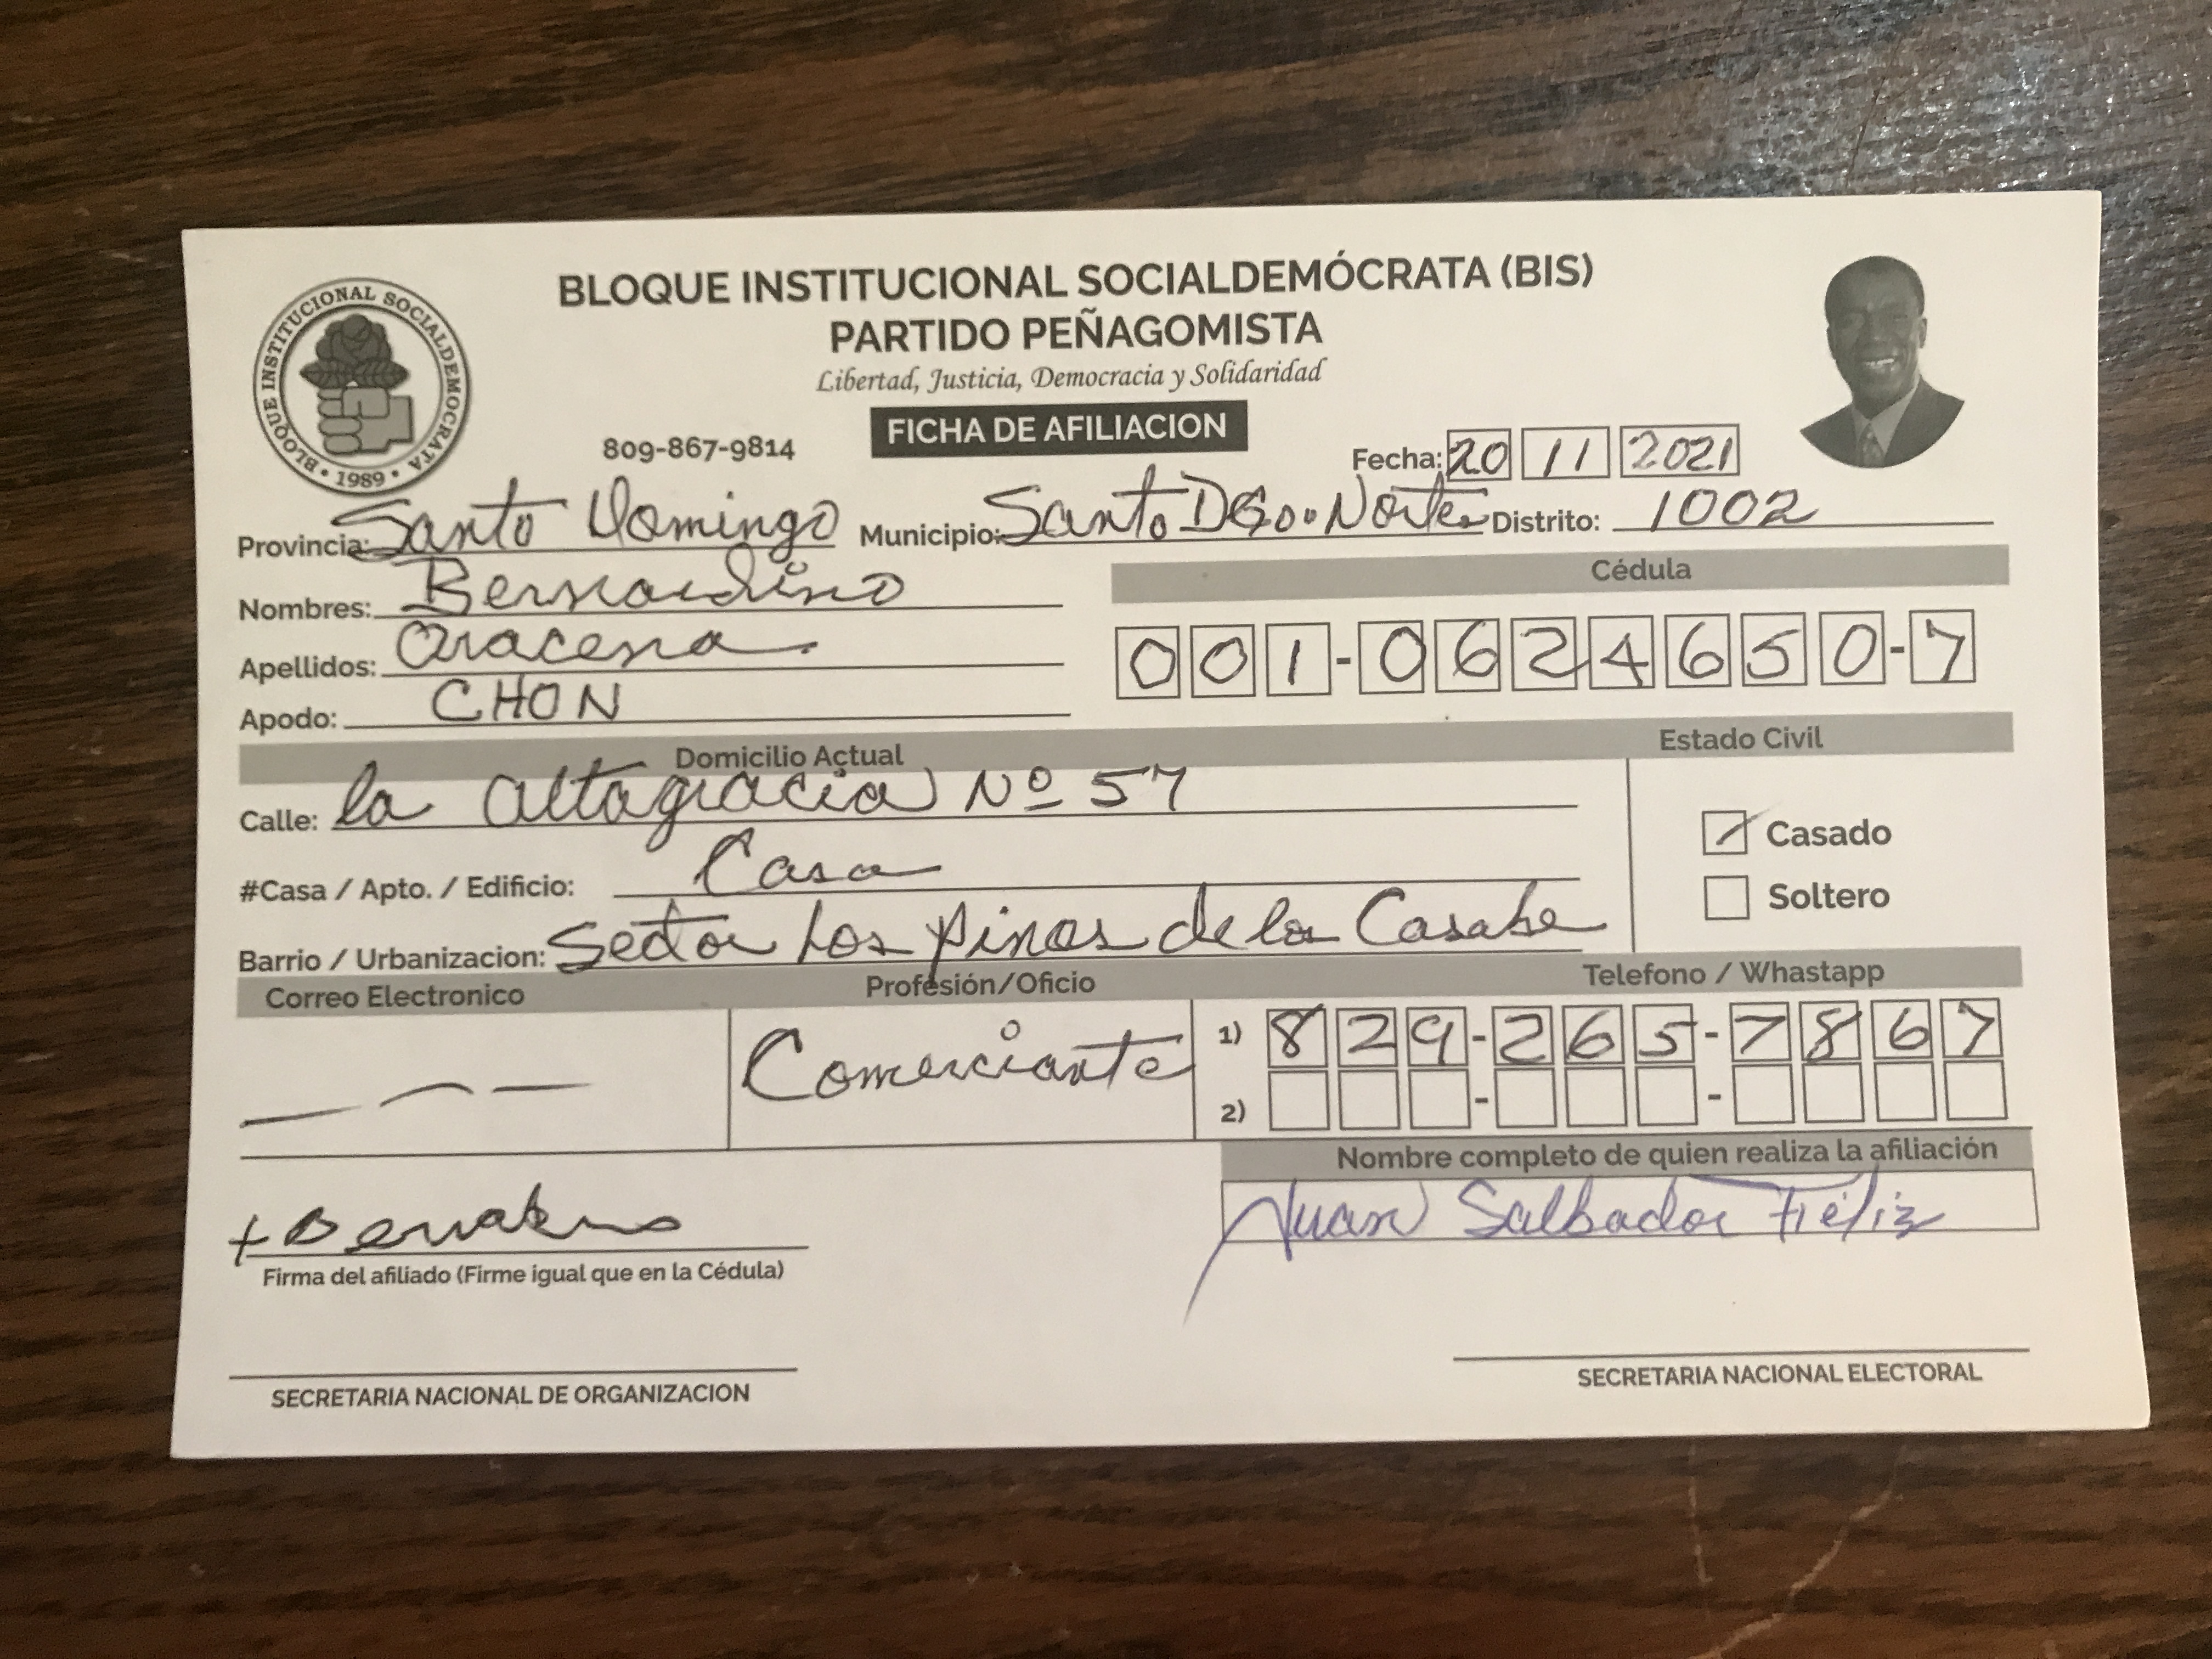 BLOQUE INSTITUCIONAL SOCIALDEMÓCRATA (BIS)
PARTIDO PEÑAGOMISTA
Libertad, Justicia, Democracia y Solidaridad
BLOQUE INSTITUCIONAL SOCIALDEMOCRATA • 1989 •
809-867-9814
FICHA DE AFILIACION
Fecha: 20 11 2021
Provincia: Santo Domingo Municipio: Santo DGo. Norte Distrito: 1002
Nombres: Bernardino
Apellidos: Aracena
Apodo: CHON
Cédula
001-0624650-7
Domicilio Actual
Calle: la Altagracia Nº 57
#Casa / Apto. / Edificio: Casa
Barrio / Urbanizacion: Sector Los Pinos de la Casabe
Estado Civil
Casado
Soltero
Correo Electronico
Profesión/Oficio
Comerciante
Telefono / Whastapp
1) 829-265-7867
2) - -
Nombre completo de quien realiza la afiliación
Juan Salbador Féliz
Firma del afiliado (Firme igual que en la Cédula)
SECRETARIA NACIONAL DE ORGANIZACION
SECRETARIA NACIONAL ELECTORAL